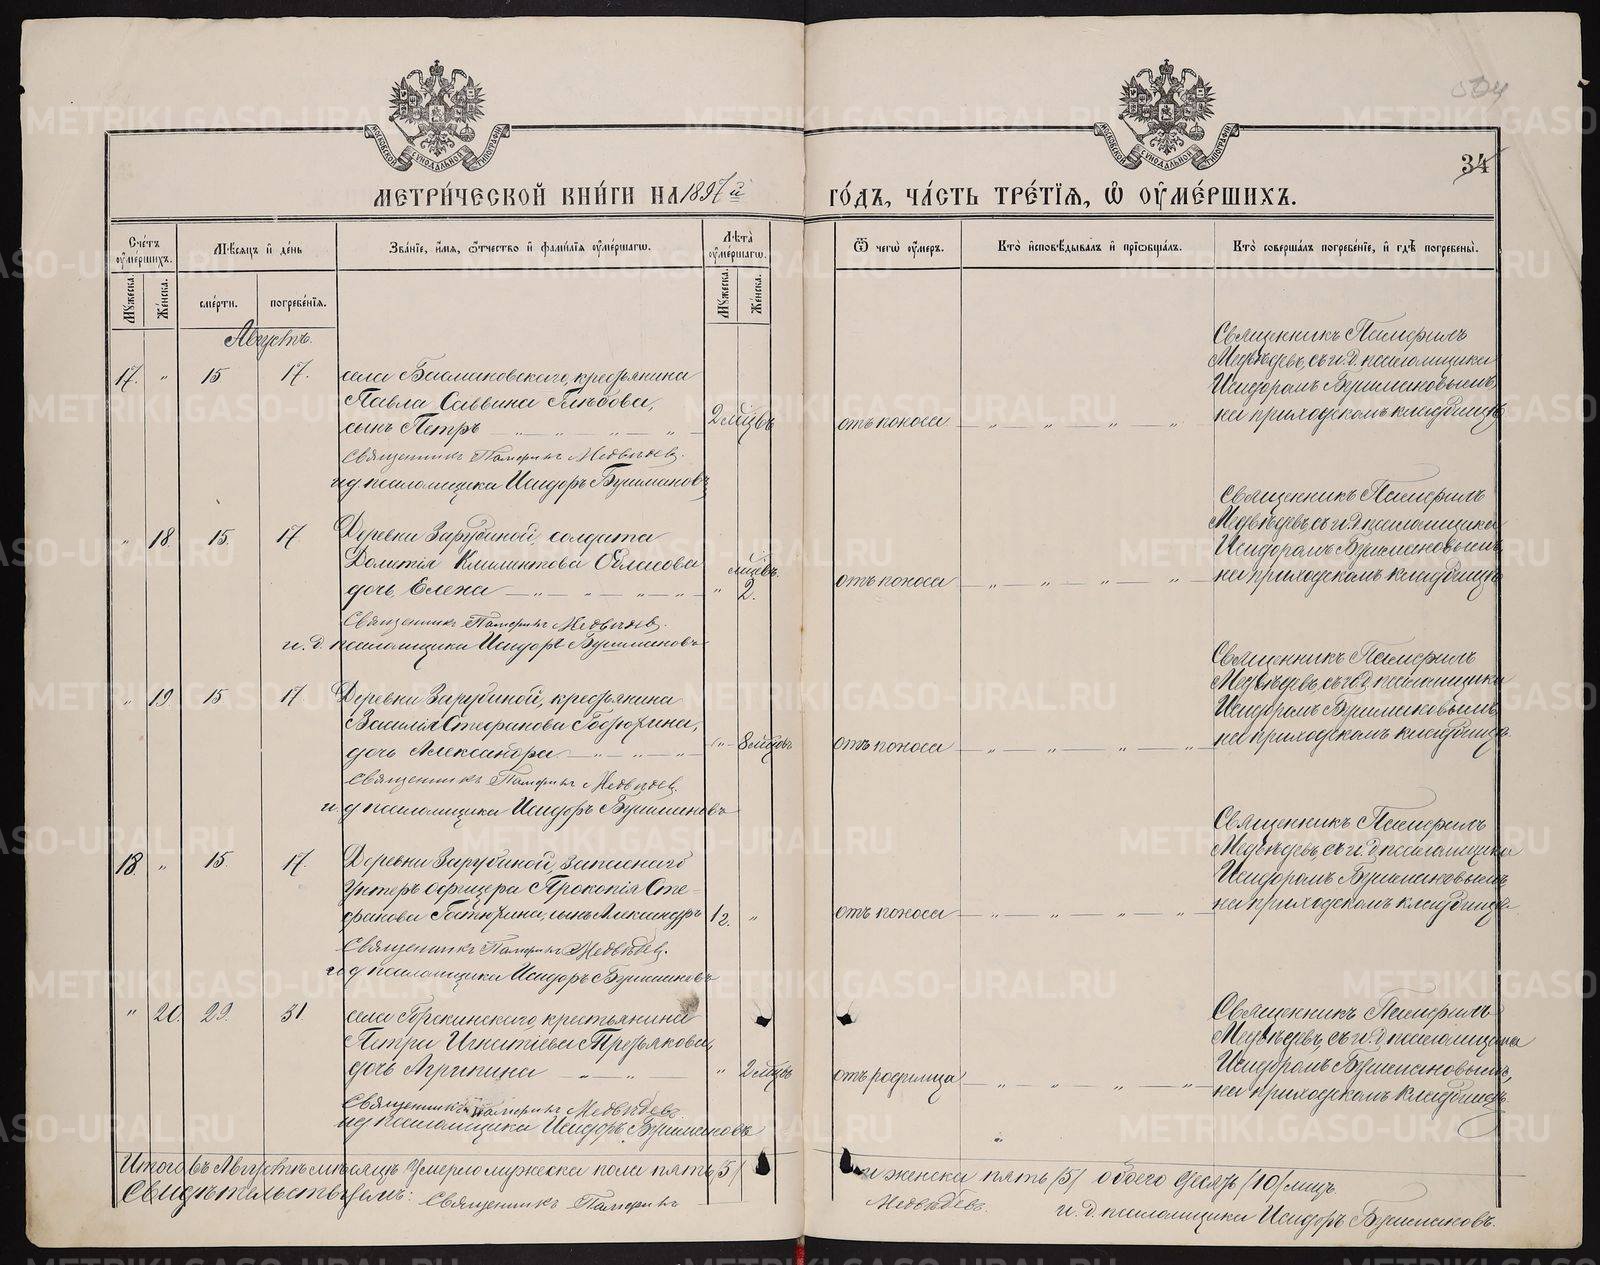 504
34
МЕТРИ́ЧЕСКОЙ КНИ́ГИ НА 1897й ГО́ДЪ, ЧА́СТЬ ТРЕ́ТІѦ, Ѽ ОУ҆МЕ́РШИХЪ.
Сче́тъ оу҆ме́ршихъ.
Мꙋ́жеска.
Же́нска.
Мѣ́сѧцъ и҆ де́нь
сме́рти.
погребе́нїѧ.
Зва́нїе, и҆́мѧ, ѻ҆́тчество и҆ фами́лїѧ оу҆ме́ршагѡ.
Лѣ́та оу҆ме́ршагѡ.
Мꙋ́жеска.
Же́нска.
Ѿ чегѡ̀ оу҆́меръ.
Кто̀ и҆сповѣ́дывалъ и҆ прїѡбща́лъ.
Кто̀ соверша́лъ погребе́нїе, и҆ гдѣ̀ погребены̀.
Августъ.
17. " 15 17. села Басмановскаго, крестьянина
Павла Саввина Глѣбова,
сынъ Петръ 2 мцъ отъ поноса
Священникъ Памфилъ Медвѣдев.
и д. псаломщика Исидоръ Бушмановъ
Священникъ Памфилъ
Медвѣдевъ, съ и. д. псаломщика
Исидоромъ Бушмановымъ,
на приходскомъ кладбищѣ
" 18. 15. 17 Деревни Зарубиной, солдата
Климентова
дочь Елена " 2. отъ поноса
Священникъ Памфилъ Медвѣдев.
и. д. псаломщика Исидоръ Бушмановъ
Священникъ Памфилъ
Медвѣдевъ, съ и. д. псаломщика
Исидоромъ Бушмановымъ,
на приходскомъ кладбищѣ
" 19. 15 17 Деревни Зарубиной, крестьянина
Василія Стефанова
дочь Александра " 8 отъ поноса
Священникъ Памфилъ Медвѣдев.
и. д. псаломщика Исидоръ Бушмановъ
Священникъ Памфилъ
Медвѣдевъ, съ и. д. псаломщика
Исидоромъ Бушмановымъ
на приходскомъ кладбищѣ
18 " 15. 17. Деревни Зарубиной, запаснаго
унтеръ офицера Прокопія Сте-
фанова сынъ Александръ 1/2. " отъ поноса
Священникъ Памфилъ Медвѣдев.
и д. псаломщика Исидоръ Бушмановъ
Священникъ Памфилъ
Медвѣдевъ, съ и. д. псаломщика
Исидоромъ Бушмановымъ
на приходскомъ кладбищѣ
" 20. 29. 31. села крестьянина
Петра Игнатіева Третьякова,
дочь Агрипина " 2 отъ родимца
Священникъ Памфилъ Медвѣдевъ.
и д псаломщика Исидоръ Бушмановъ
Священникъ Памфилъ
Медвѣдевъ, съ и. д. псаломщика
Исидоромъ Бушмановымъ,
на приходскомъ кладбищѣ.
Итого въ Августѣ мѣсяцѣ умерло мужеска пола пять /5/ и женска пять /5/ обоего десять /10/ лицъ.
Свидѣтельствуемъ: Священникъ Памфилъ Медвѣдевъ.
и. д. псаломщика Исидоръ Бушмановъ.